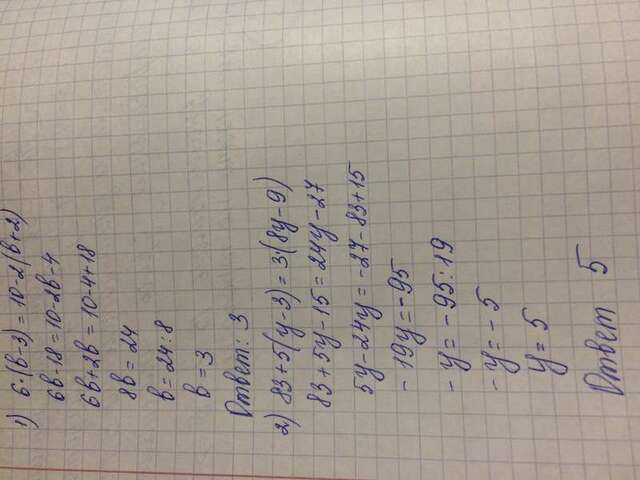 1) 6·(в-3) = 10-2(в+2)
6в-18 = 10-2в-4
6в+2в = 10-4+18
8в = 24
в = 24:8
в = 3
Ответ: 3
2) 83+5(y-3) = 3·(8y-9)
83+5y-15 = 24y-27
5y-24y = -27-83+15
-19y = -95
-y = -95:19
-y = -5
y = 5
Ответ 5